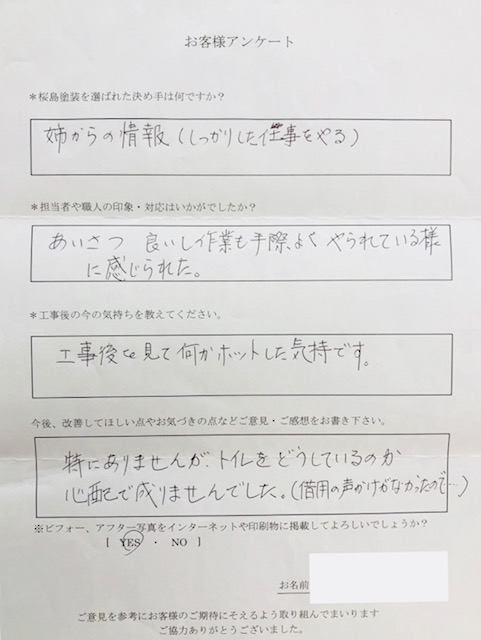 お客様アンケート
＊桜島塗装を選ばれた決め手は何ですか？
姉からの情報（しっかりした仕事をやる）
＊担当者や職人の印象・対応はいかがでしたか？
あいさつ 良いし作業も手際よく やられている様
に感じられた。
＊工事後の今の気持ちを教えてください。
工事後を見て何かホットした気持です。
今後、改善してほしい点やお気づきの点などご意見・ご感想をお書き下さい。
特にありませんが、トイレをどうしているのか
心配で成りませんでした。（借用の声かけがなかったので…）
※ビフォー、アフター写真をインターネットや印刷物に掲載してよろしいでしょうか？
［ YES ・ NO ］
お名前
ご意見を参考にお客様のご期待にそえるよう取り組んでまいります
ご協力ありがとうございました。